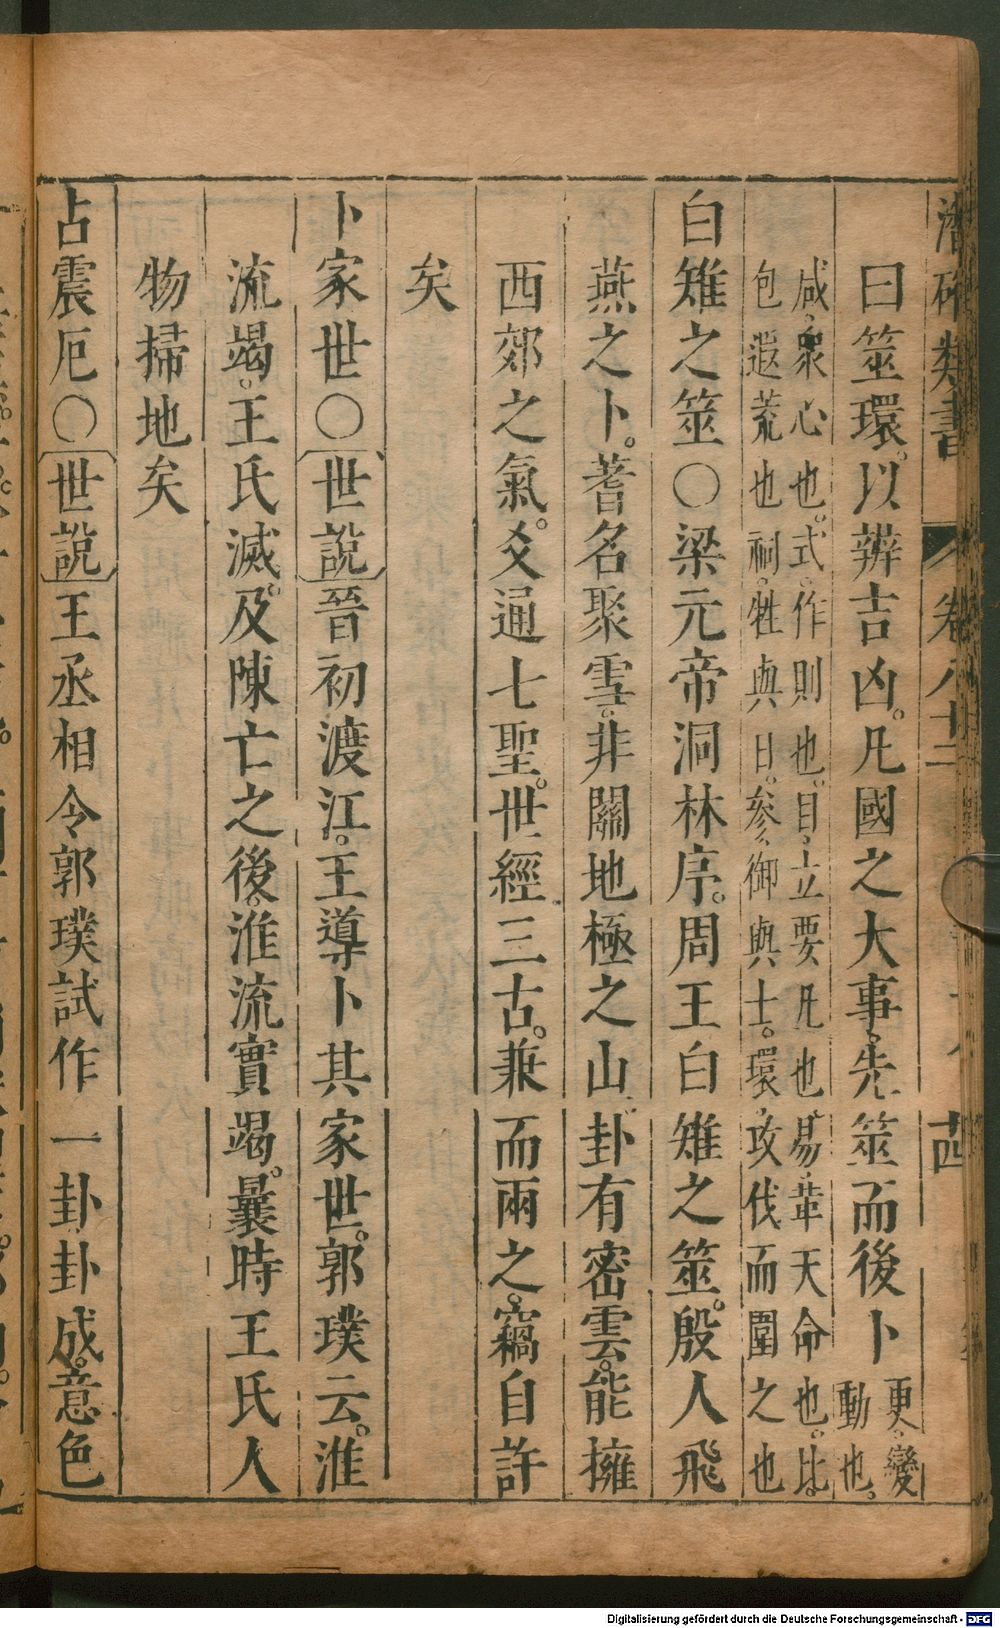 潛確類書 卷八十二 十四
曰筮環。以辨吉凶。凡國之大事。先筮而後卜更。變動也。
咸。衆心也。式。作則也。目。立要凡也。易。革天命也。比。
包遐荒也祠。牲與日。參。御與士。環。攻伐而圍之也
白雉之筮〇梁元帝洞林序。周王白雉之筮。殷人飛
燕之卜。蓍名聚雪。非關地極之山。卦有密雲。能擁
西郊之氣。爻通七聖。世經三古。兼而兩之。竊自許
矣
卜家世〇世說晉初渡江。王導卜其家世。郭璞云。淮
流竭。王氏滅。及陳亡之後。淮流實竭。曩時王氏人
物掃地矣
占震厄〇世說王丞相令郭璞試作一卦。卦成。意色
Digitalisierung gefördert durch die Deutsche Forschungsgemeinschaft - DFG